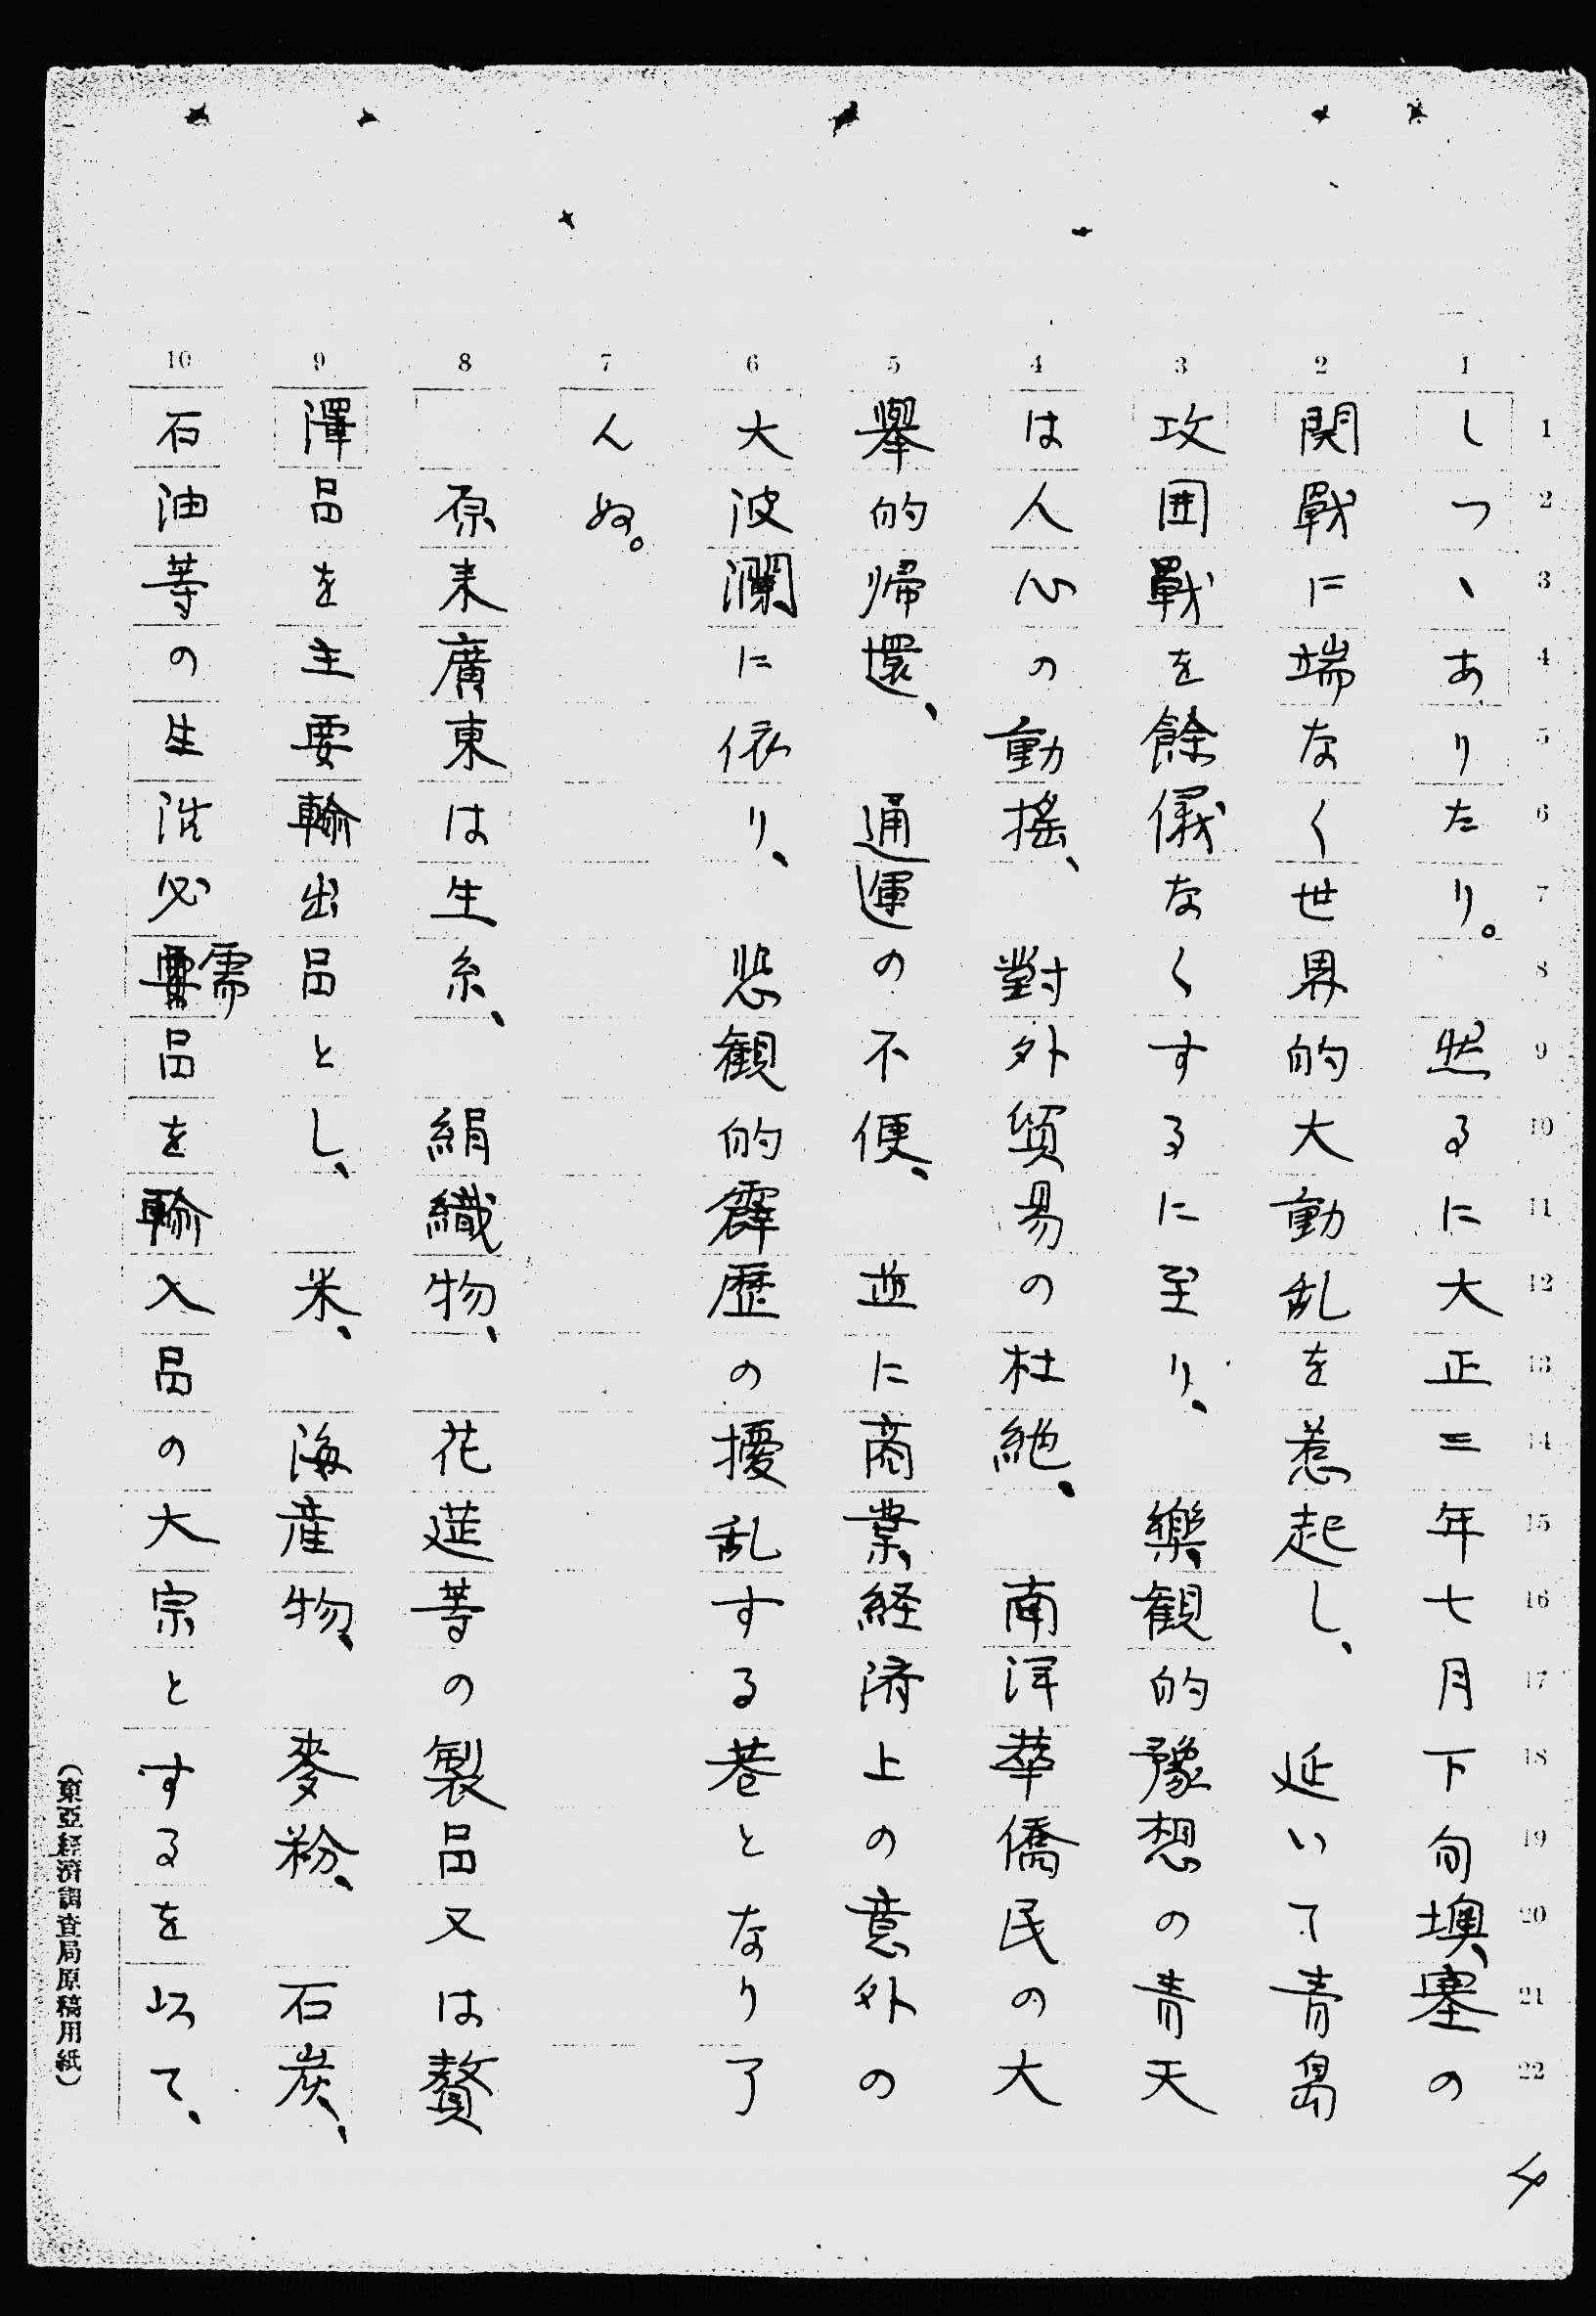 1 2 3 4 5 6 7 8 9 10
1 2 3 4 5 6 7 8 9 10 11 12 13 14 15 16 17 18 19 20 21 22
しつゝありたり。然るに大正三年七月下旬墺、塞の
関戰に端なく世界的大動乱を惹起し、延いて青島
攻囲戰を餘儀なくするに至り、樂観的豫想の青天
は人心の動揺、對外貿易の杜絶、南洋華僑民の大
擧的帰還、通運の不便、並に商業経済上の意外の
大波瀾に依り、悲観的霹歴の擾乱する巷となり了
んぬ。
原来廣東は生糸、絹織物、花莚等の製品又は贅
澤品を主要輸出品とし、米、海産物、麥粉、石炭、
石油等の生活必需品を輸入品の大宗とするを以て、
4
(東亞経済調査局原稿用紙)